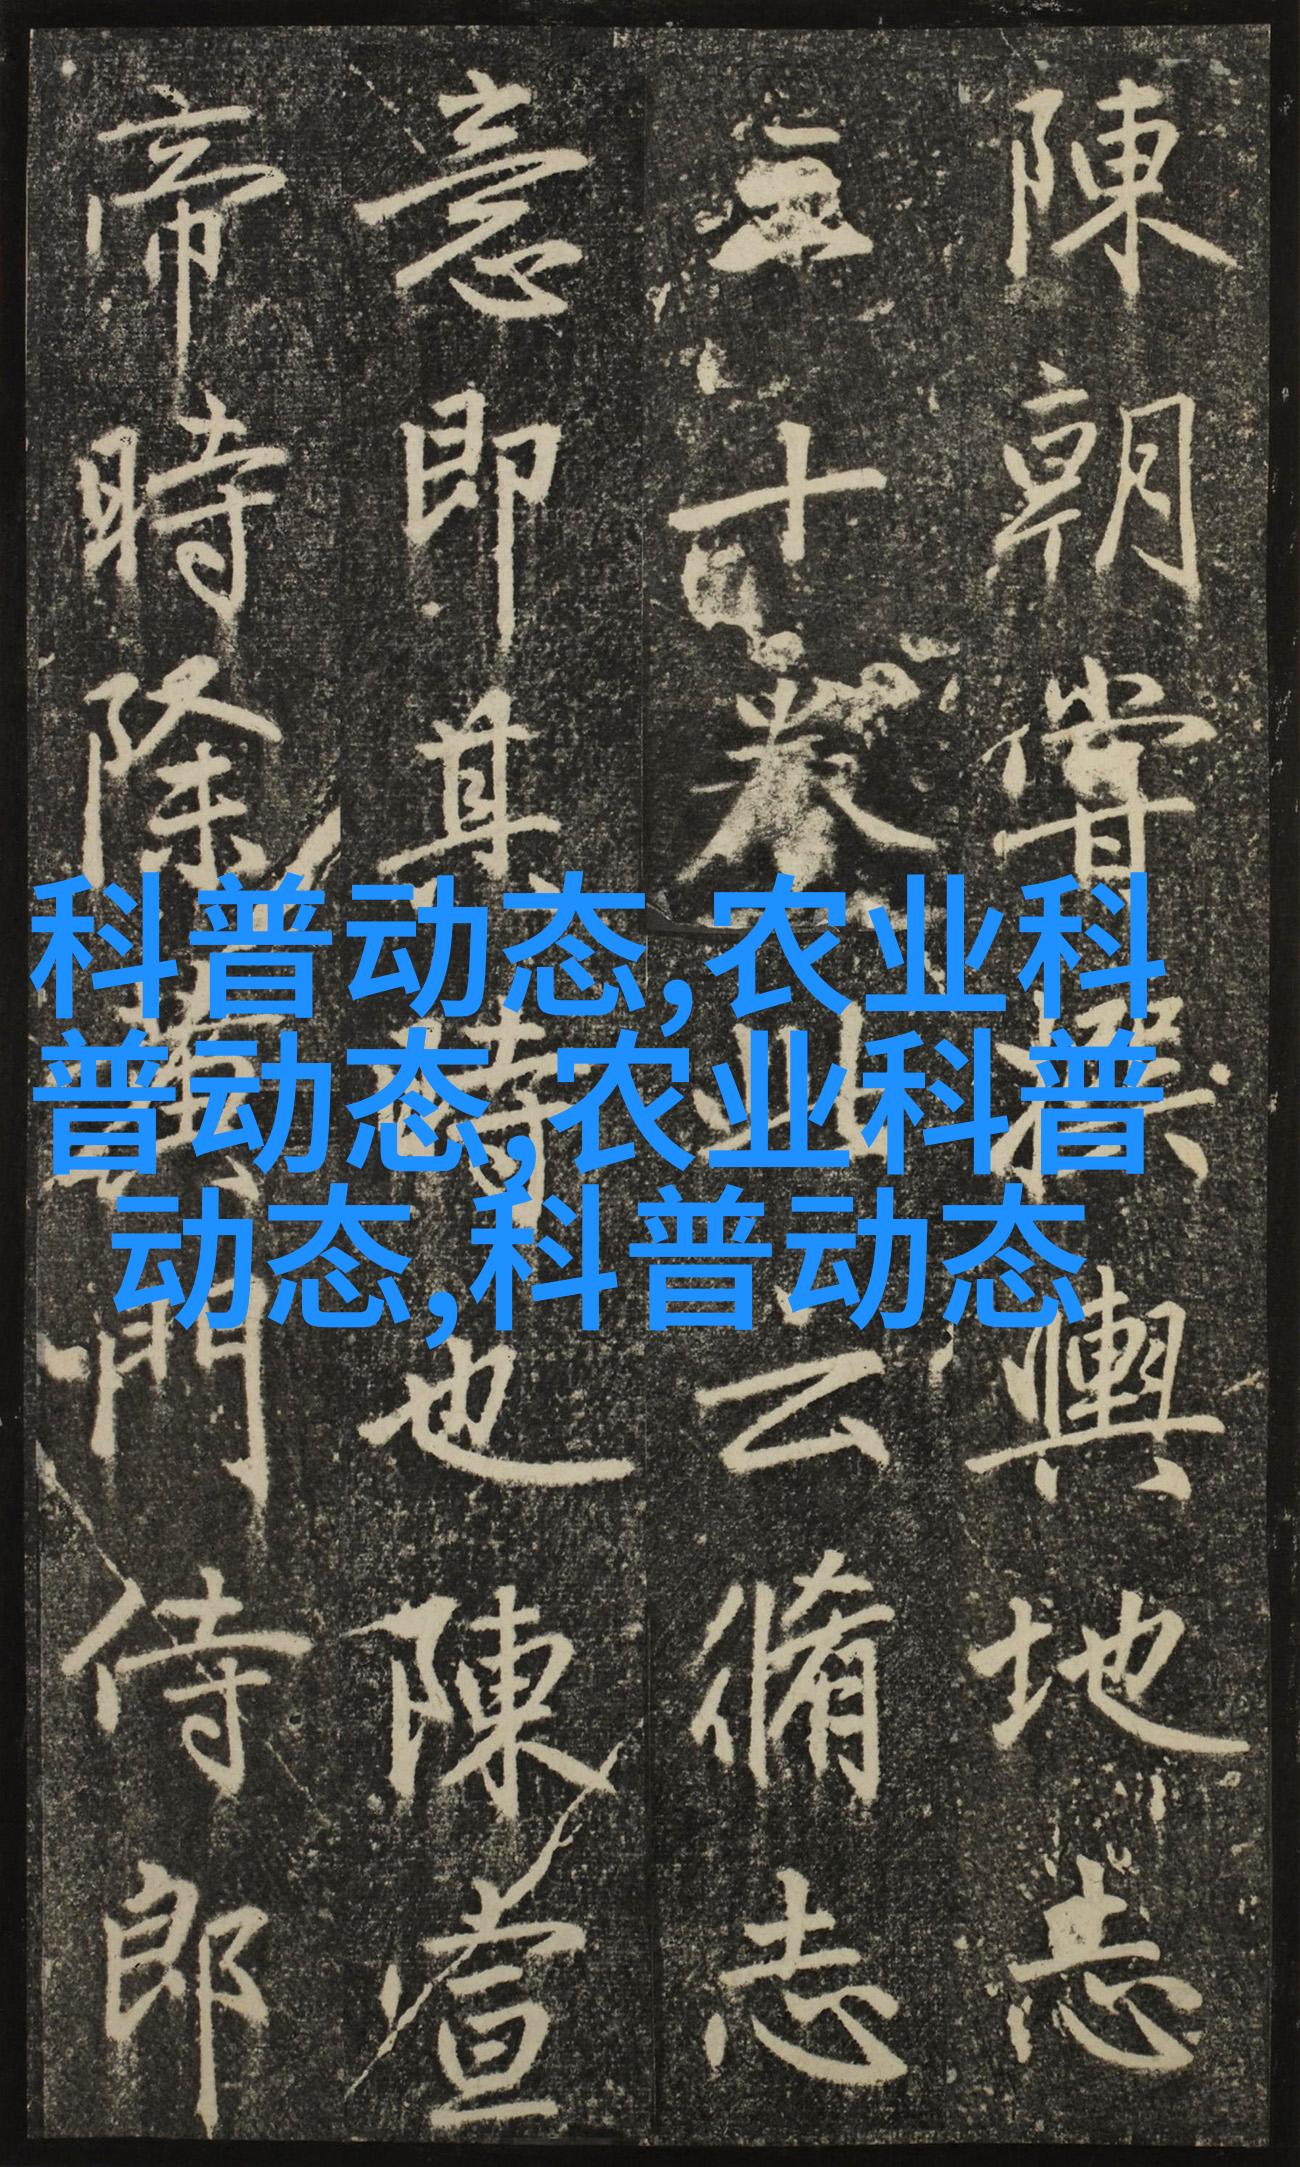 陳朝嘗撰輿地志
三十卷此云脩志
意即其時也陳宣
帝時除黄門侍郎
科普动态,农业科
普动态,农业科普
动态,科普动态